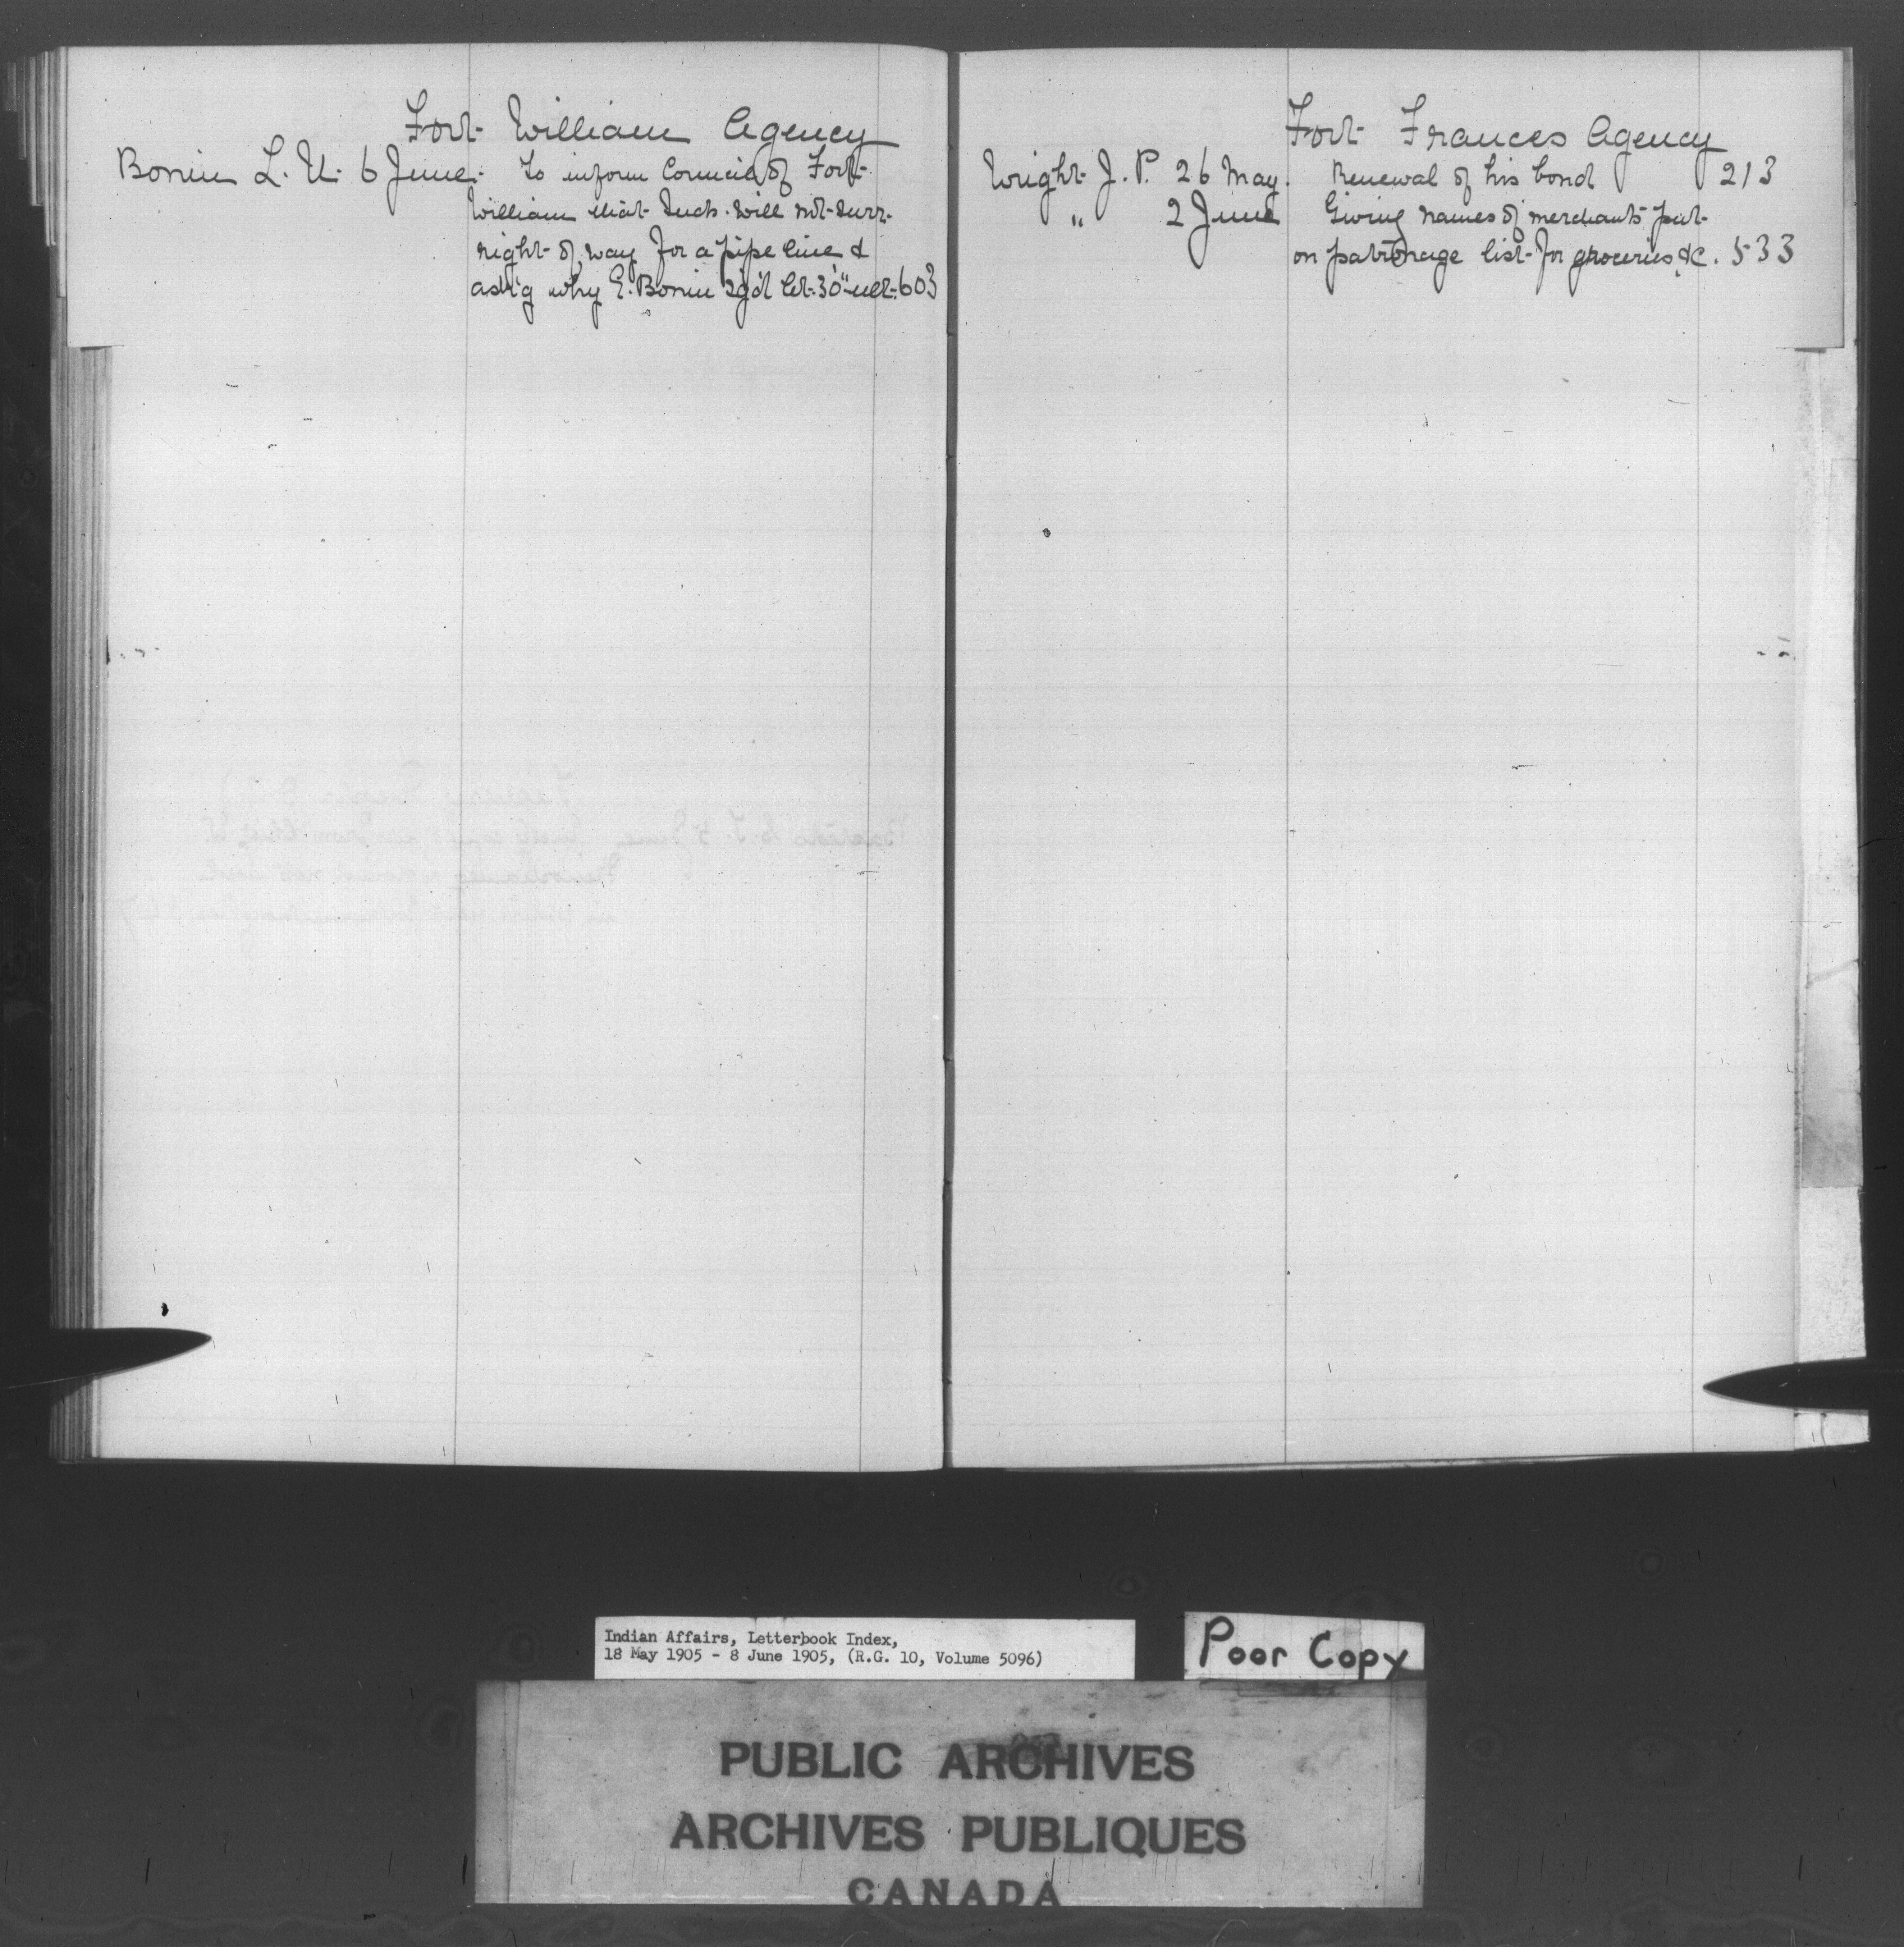 Fort William Agency
Bonin L. U. 6 June. To inform Council of Fort
William that Inds. will not surr.
right of way for a pipe line &
ask'g why E. Bonin sg'd let. 30" ult. 603
Fort Frances Agency
Wright J. P. 26 May. Renewal of his bond 213
" 2 June Giving names of merchants put
on patronage list for groceries &c. 533
Indian Affairs, Letterbook Index,
18 May 1905 - 8 June 1905, (R.G. 10, Volume 5096)
Poor Copy
PUBLIC ARCHIVES
ARCHIVES PUBLIQUES
CANADA